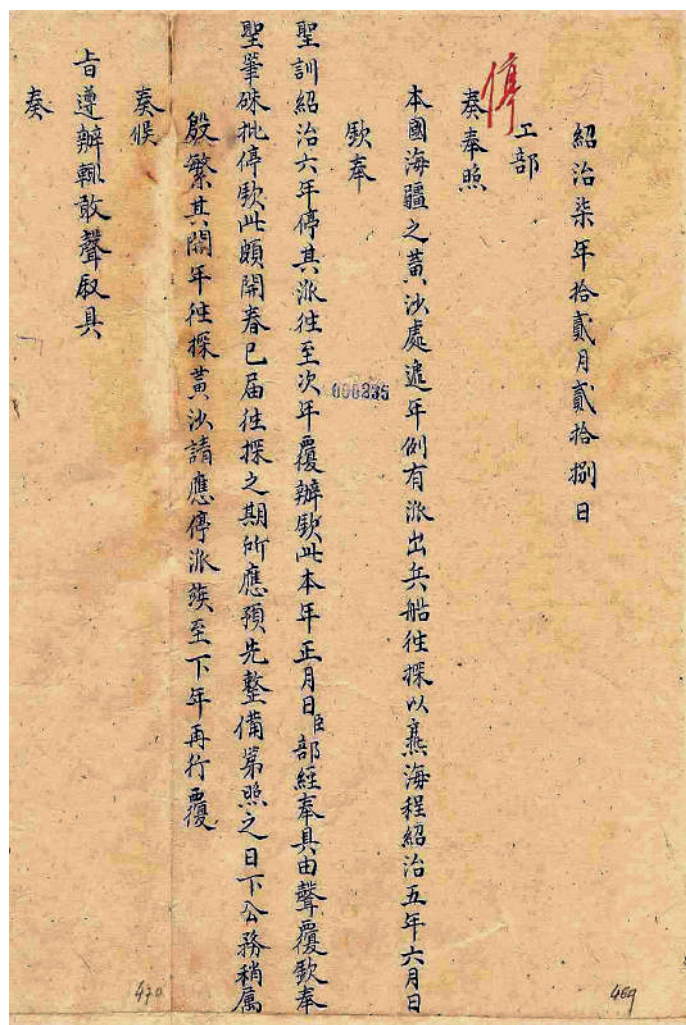 紹治柒年拾貳月貳拾捌日
工部
停
奏奉照
本國海疆之黄沙處遞年例有派出兵船往探以熟海程紹治五年六月日
欽奉
聖訓紹治六年停其派往至次年覆辦欽此本年正月日臣部經奉具由聲覆欽奉
聖筆硃批停欽此頗開春已届往探之期所應預先整備第照之日下公務稍属
殷繁其閏年往探黄沙請應停派竢至下年再行覆
奏候
旨遵辦輒敢聲叙具
奏
000235
470
469